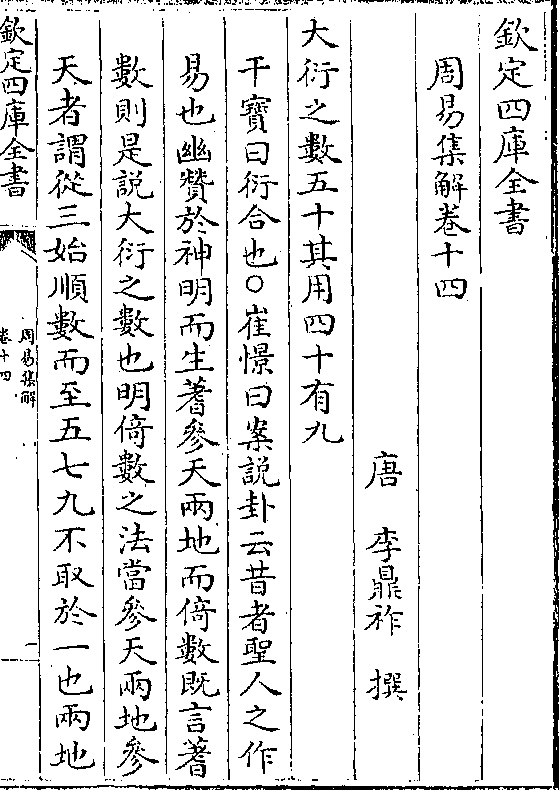 欽定四庫全書
周易集解卷十四
唐 李鼎祚 撰
大衍之數五十其用四十有九
干寶曰衍合也○崔憬曰案說卦云昔者聖人之作
易也幽贊於神明而生蓍參天兩地而倚數既言蓍
數則是說大衍之數也明倚數之法當參天兩地參
天者謂從三始順數而至五七九不取於一也兩地
欽定四庫全書
周易集解
卷十四
一